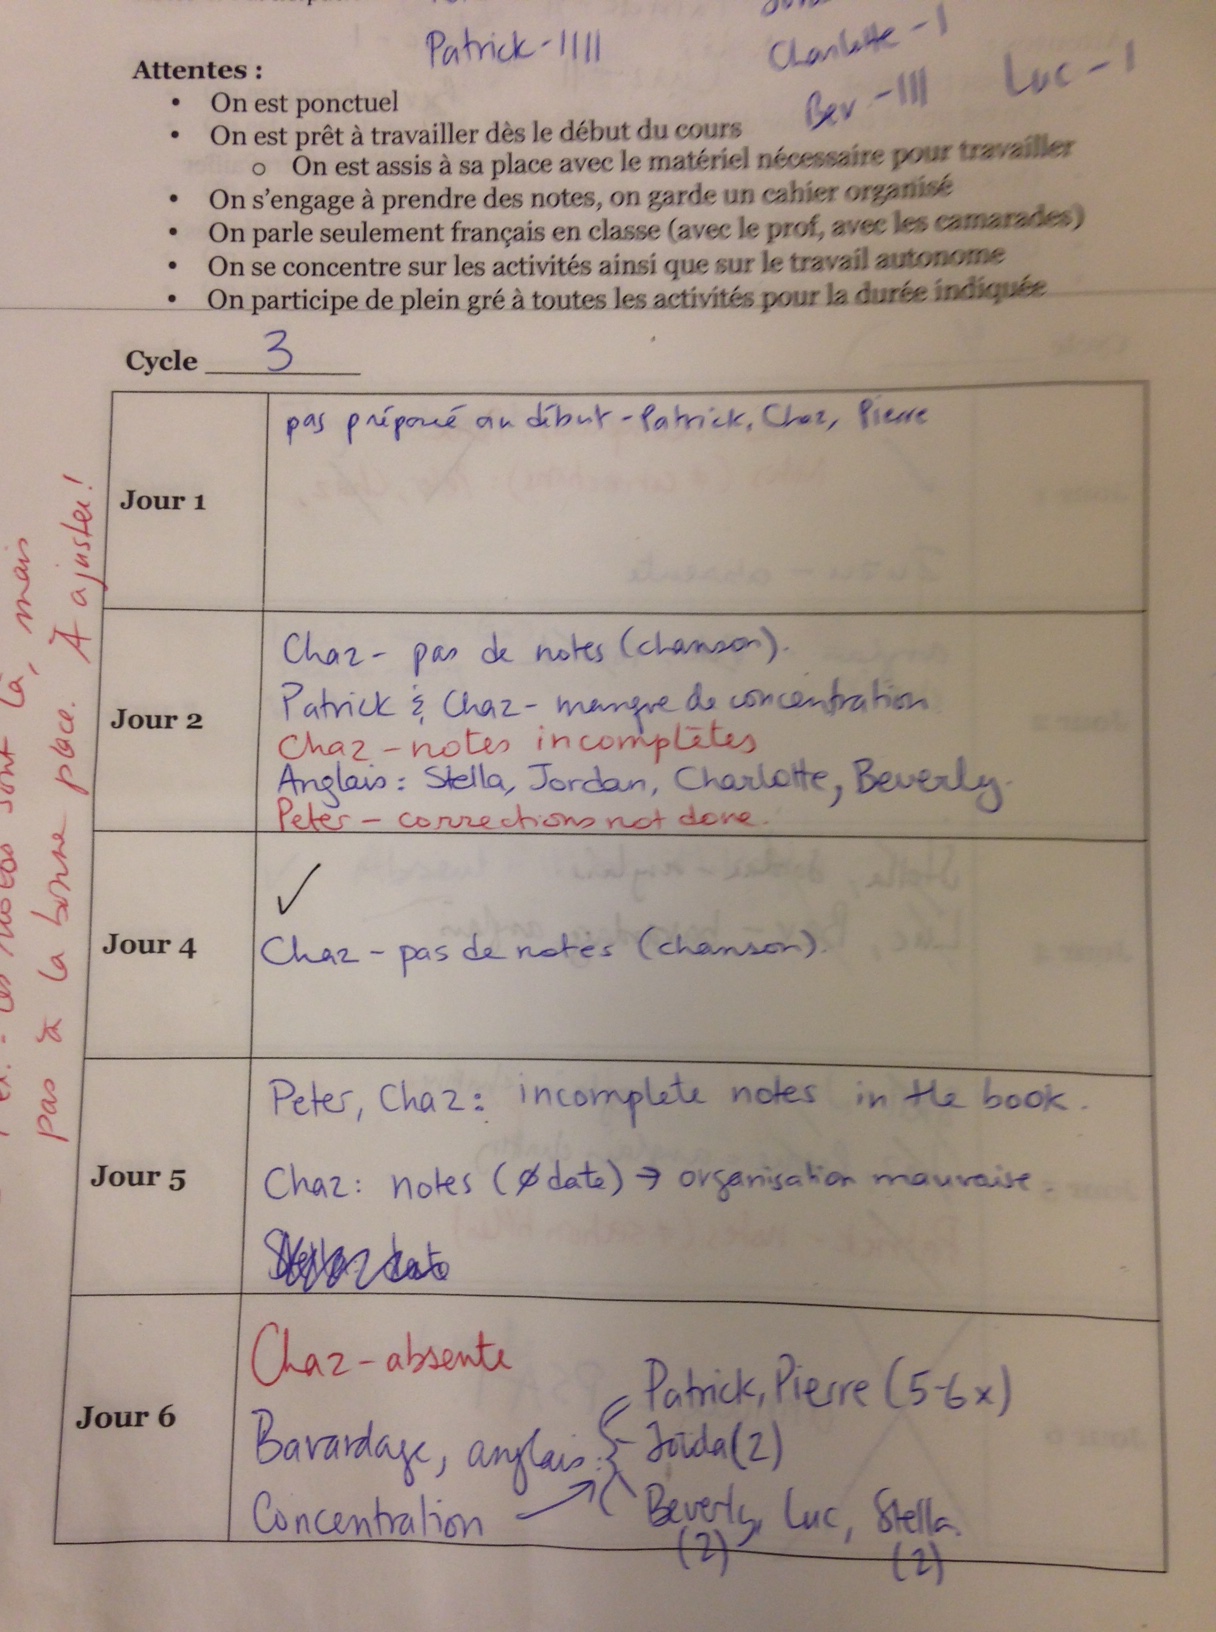 Patrick - IIII
Charlotte - I
Bev - III
Luc - I
Attentes :
• On est ponctuel
• On est prêt à travailler dès le début du cours
o On est assis à sa place avec le matériel nécessaire pour travailler
• On s'engage à prendre des notes, on garde un cahier organisé
• On parle seulement français en classe (avec le prof, avec les camarades)
• On se concentre sur les activités ainsi que sur le travail autonome
• On participe de plein gré à toutes les activités pour la durée indiquée
Cycle 3
Jour 1
pas préparé au début - Patrick, Chaz, Pierre
Jour 2
Chaz - pas de notes (chanson).
Patrick & Chaz - manque de concentration
Chaz - notes incomplètes
Anglais : Stella, Jordan, Charlotte, Beverly.
Peter - corrections not done.
Jour 4
✓
Chaz - pas de notes (chanson).
Jour 5
Peter, Chaz : incomplete notes in the book.
Chaz : notes (ø date) → organisation mauvaise.
Jour 6
Chaz - absente
Bavardage, anglais :
Concentration →
Patrick, Pierre (5-6x)
(2)
Beverly, Luc, Stella.
(2) (2)
ex. - Les notes sont là, mais
pas à la bonne place. À ajuster!